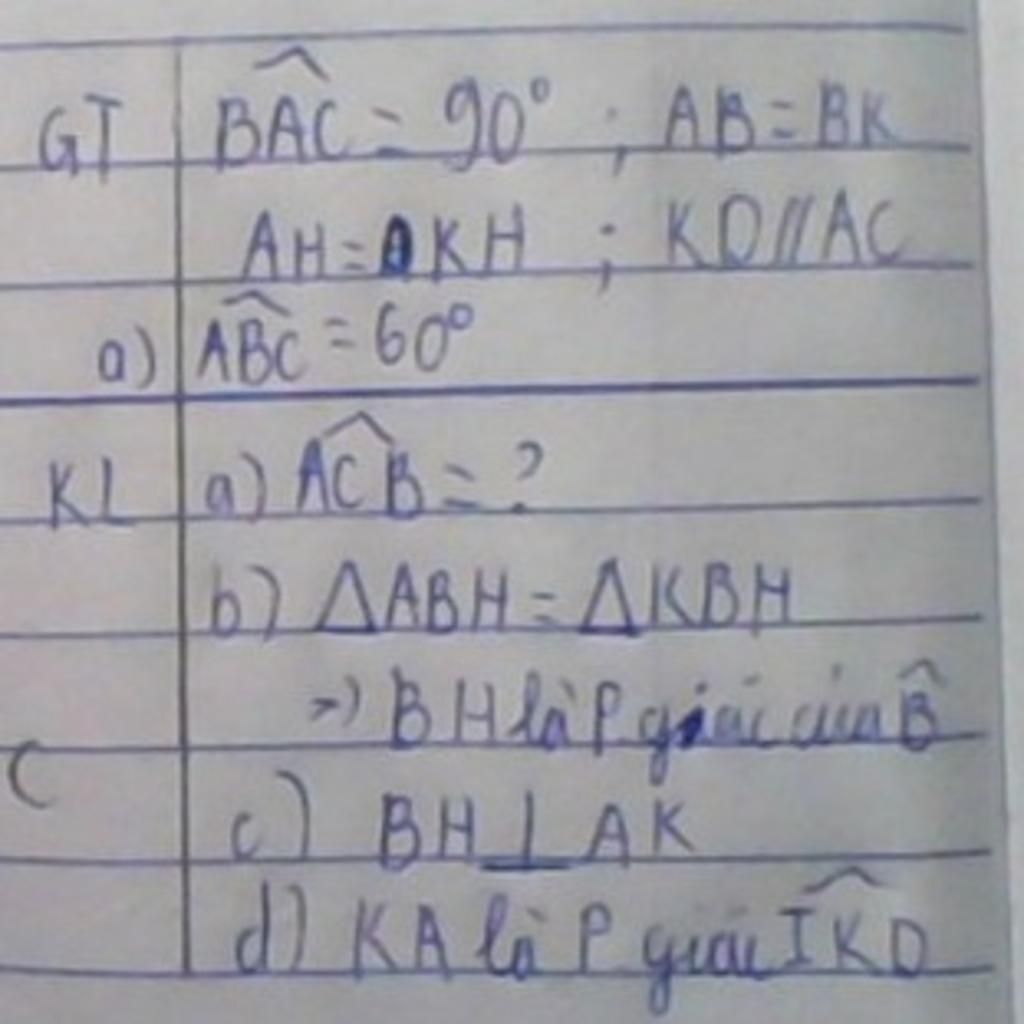 GT BAC = 90° ; AB = BK
AH = KH ; KD // AC
a) ABC = 60°
KL a) ACB = ?
b) ΔABH = ΔKBH
=) BH là P giác của B̂
C
c) BH ⊥ AK
d) KA là P giác IKD